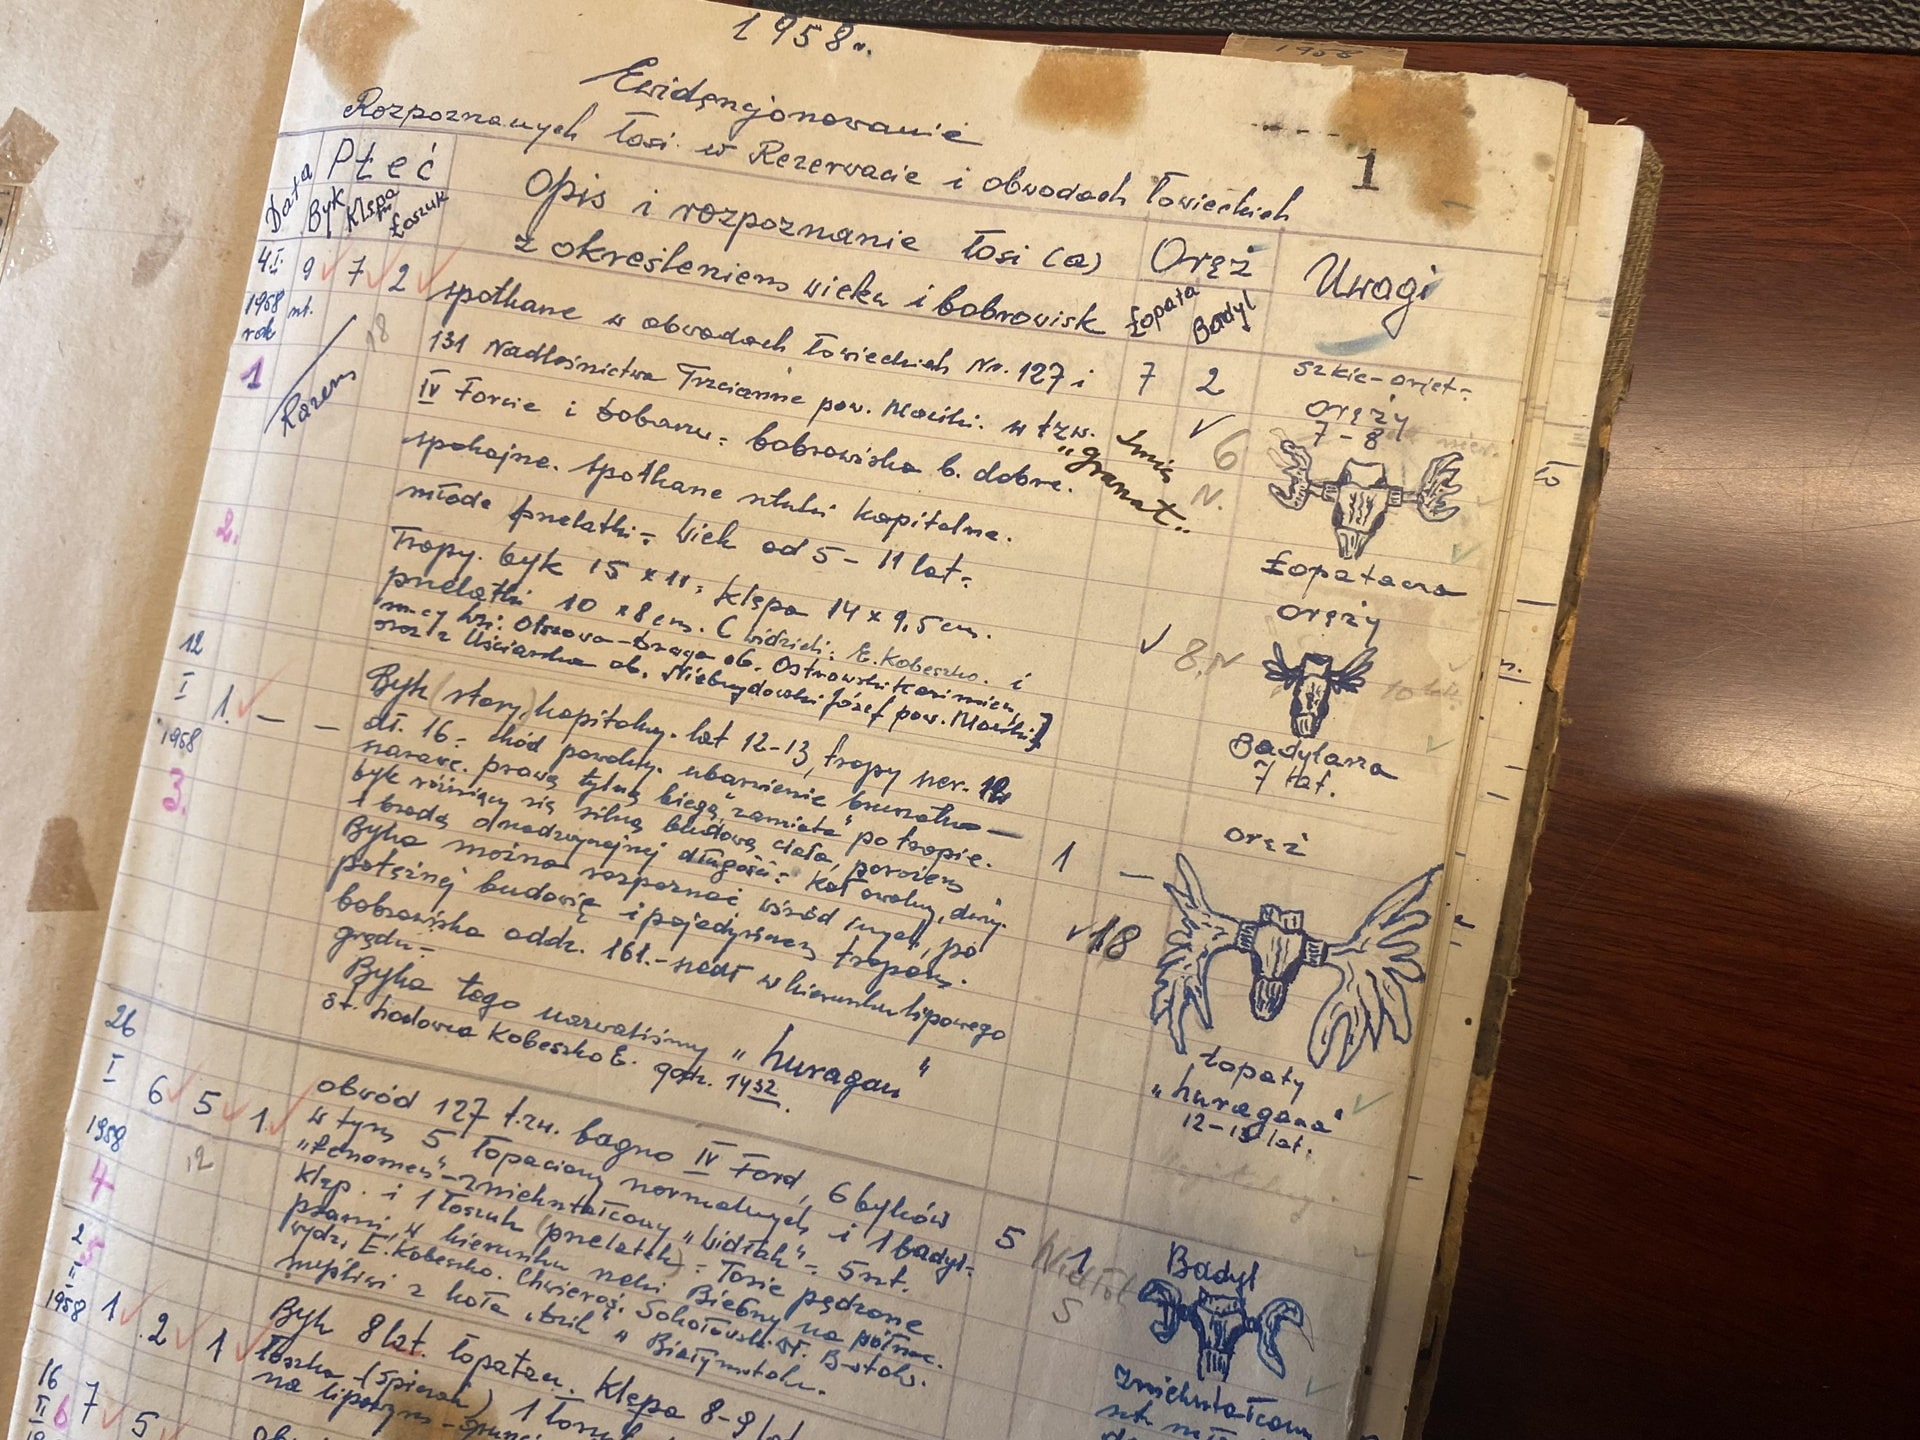 1958r.
1958
Ewidencjonowanie
Rozpoznanych łosi w Rezerwacie i obwodach łowieckich
1
Data
Płeć
Byk Klępa Łoszuk
Opis i rozpoznanie łosi (a)
z określeniem wieku i bobrowisk
Oręż
Łopata Badyl
Uwagi
4 I 1958 rok
9 szt. 7 2
18
Razem
1
spotkane w obwodach łowieckich Nr. 127 i
131 Nadleśnictwa Trzcianne pow. Mońki. w tzw.
IV Forcie i bobrowiska b. dobre.
spokojne. spotkane sztuki kapitalne.
młode przelatki = Wiek od 5 - 11 lat =
Tropy. byk 15 x 11 = klępa 14 x 9,5 cm.
przelatki 10 x 8 cm. (widzieli: E. Kobeszko. i
oraz z Uściańska ob. Niebrzydowski Józef pow. Mońki)
"granat"
7 2
6
N.
8. N
szkic-orjet=
oręży
7 - 8
Łopatacza
oręży
Badylarza
7 lat.
2.
12 I 1958
1. — —
3.
Byk (stary) kapitalny. lat 12-13, tropy szer. 12
dł. 16 = chód powolny. ubarwienie brunatno —
prawą tylną biegą "zamiata" po tropie.
byk różniący się silną budową ciała, porożem
i brodą długości =
Byka można rozpoznać wśród innych, po
potężnej budowie i pojedyńczym tropem.
bobrowiska oddz. 161. - szedł w kierunku lipowego
grądu =
Byka tego nazwaliśmy "huragan"
st. hodowca Kobeszko E. godz. 14 32.
1 —
18
oręż
łopaty
"huragana"
12-13 lat.
26 I 1958
6 5 1
12
4
obwód 127 t.zw. bagno IV Ford, 6 byków
w tym 5 łopaciany normalnych i 1 badyl=
"fenomen" - zniekształcony "Widłak" = 5 szt.
klęp. i 1 łoszuk (przelatek) = Łosie pędzone
psami w kierunku rzeki Biebrzy na północ.
wydz. E. Kobeszko. Sokołowski W. B-stok.
myśliwi z koła "Dzik" Białymstoku.
5 1
5
Badyl
zniekształcony
2 II 1958
5
1 2 1
Byk 8 lat. łopatacz. Klępa 8-9 lat
łoszka (spiczak) 1
na lipowym -
16 II
6
7 5